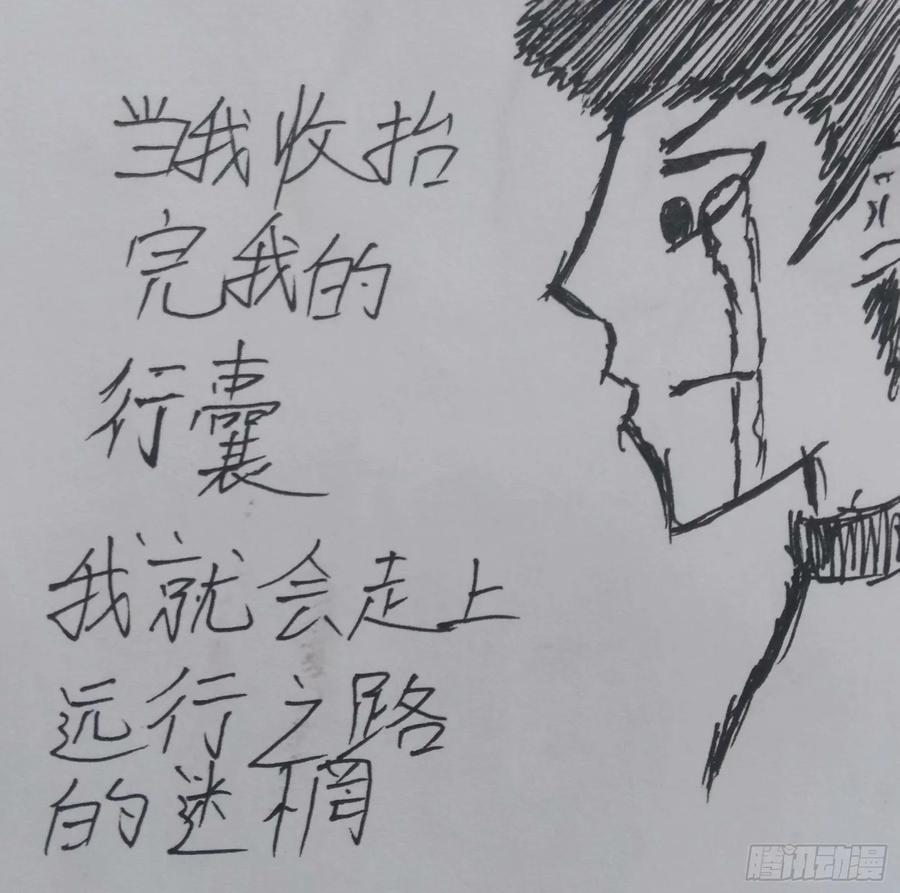 当我收抬
完我的
行囊
我就会走上
远行之路
的迷惘
腾讯动漫